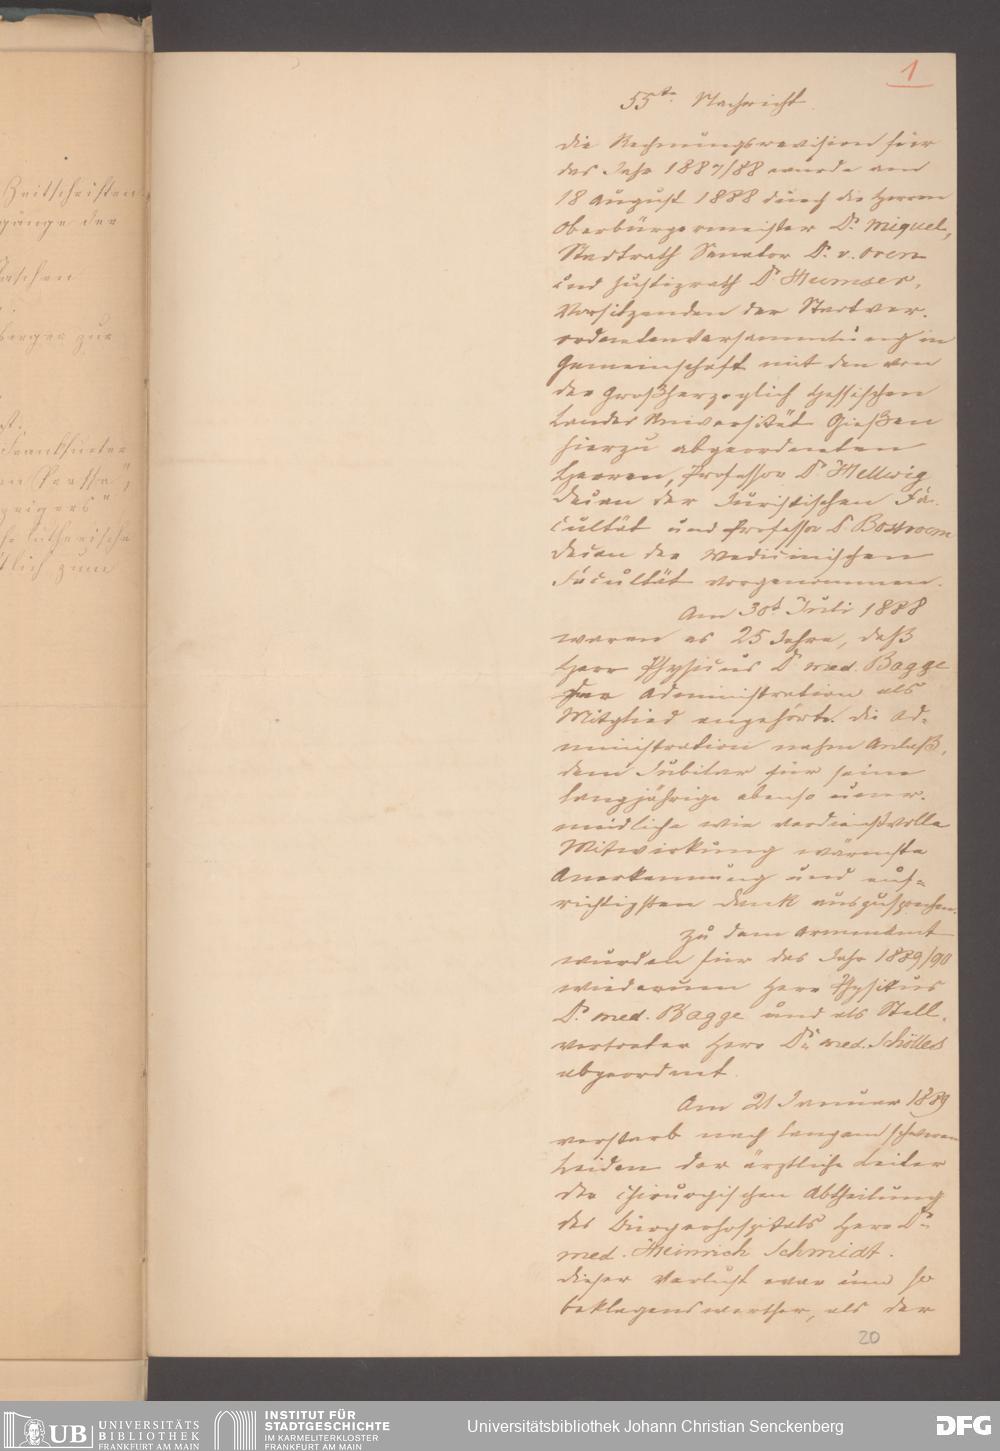 1
55te Nachricht.
Die Rechnungsrevision für
das Jahr 1887/88 wurde am
18 August 1888 durch die Herren
Oberbürgermeister Dr. Miquel,
Stadtrath Senator Dr. v. Oven
und Justizrath Dr Humser,
Vorsitzenden der Stadtver-
ordnetenversammlung in
Gemeinschaft mit den von
der Großherzoglich Hessischen
Landes Universität Gießen
hierzu abgeordneten
Herren, Professor Dr Hellwig
Decan der Juristischen Fa-
cultät und Professor Dr Bostroem
Decan der Medicinischen
Facultät vorgenommen.
Am 30t Juli 1888
waren es 25 Jahre, daß
Herr Physicus Dr med. Bagge
der Administration als
Mitglied angehörte. Die Ad-
ministration nahm Anlaß,
dem Jubilar für seine
langjährige ebenso uner-
müdliche wie verdienstvolle
Mitwirkung wärmste
Anerkennung und auf-
richtigsten Dank auszusprechen.
Zu dem Armenamt
wurden für das Jahr 1889/90
wiederum Herr Physikus
Dr. med. Bagge und als Stell-
vertreter Herr Dr. med. Schölles
abgeordnet.
Am 21 Januar 1889
verstarb nach langem schweren
Leiden der ärztliche Leiter
der chirurgischen Abtheilung
des Bürgerhospitals Herr Dr.
med. Heinrich Schmidt.
Dieser Verlust war um so
beklagenswerther, als der
20
Zeitschriften
gänge der
Taschen
berger zur
st.
Frankfurter
en Presse",
zeigers"
he lutherische
tlich zum
UB UNIVERSITÄTS
BIBLIOTHEK
FRANKFURT AM MAIN
INSTITUT FÜR
STADTGESCHICHTE
IM KARMELITERKLOSTER
FRANKFURT AM MAIN
Universitätsbibliothek Johann Christian Senckenberg
DFG